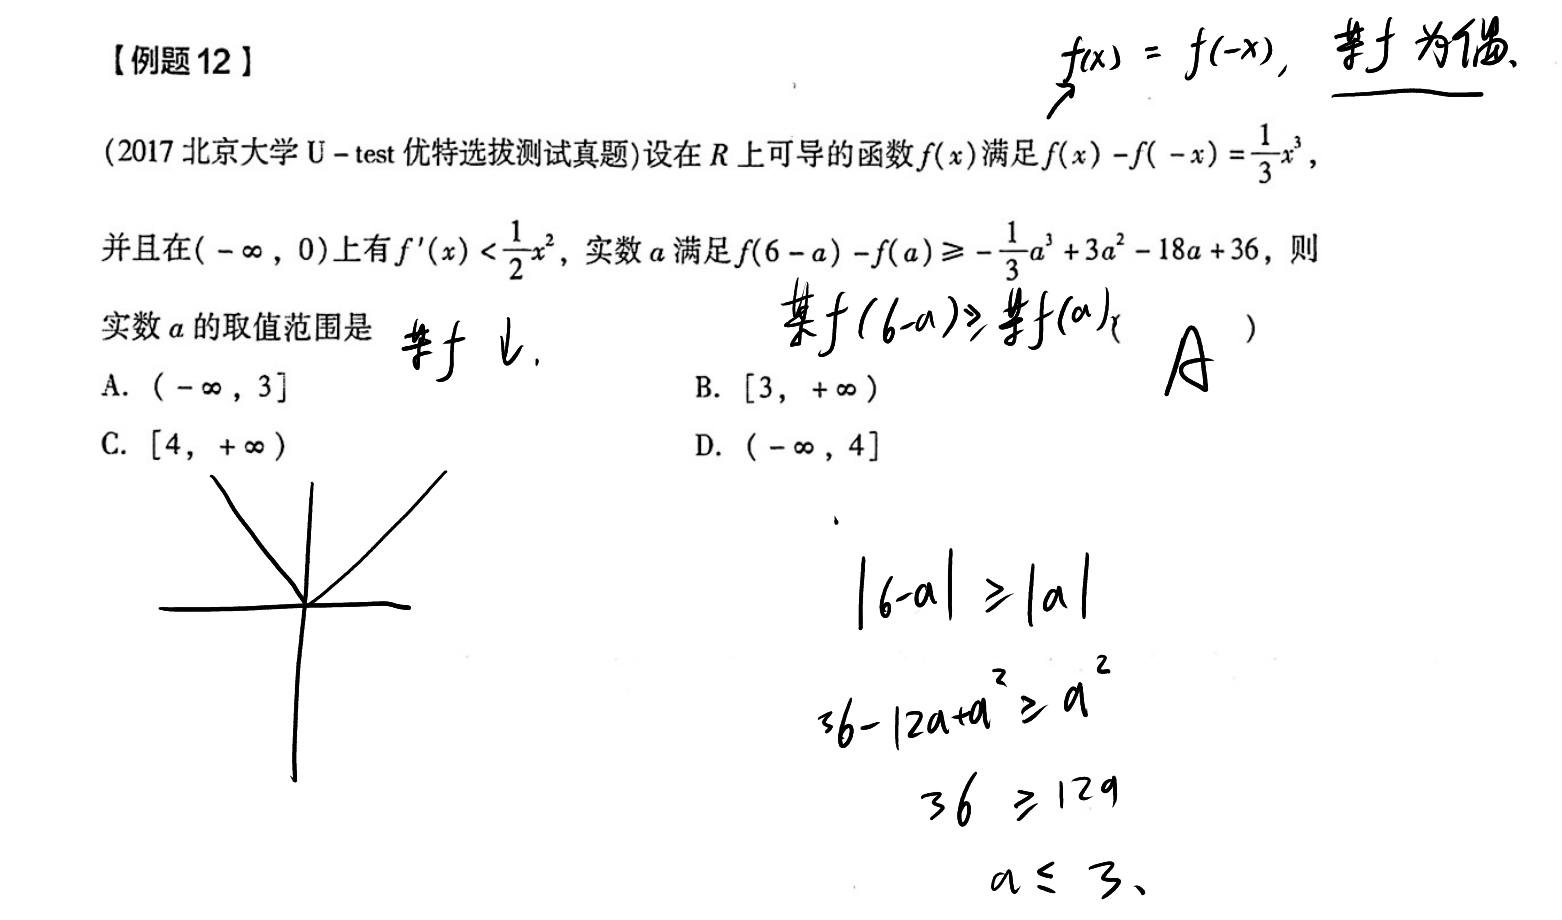 【例题12】
f(x) = f(-x), 某f 为偶、
(2017 北京大学 U-test 优特选拔测试真题)设在 R 上可导的函数 f(x)满足 f(x)-f(-x)=\frac{1}{3}x³,
并且在(-∞, 0)上有 f'(x)<\frac{1}{2}x², 实数 a 满足 f(6-a)-f(a)≥-\frac{1}{3}a³+3a²-18a+36, 则
实数 a 的取值范围是 ( )
某f ↓.
某f(6-a)≥某f(a)
A
A. (-∞, 3]
B. [3, +∞)
C. [4, +∞)
D. (-∞, 4]
|6-a| ≥ |a|
36-12a+a² ≥ a²
36 ≥ 12a
a ≤ 3、